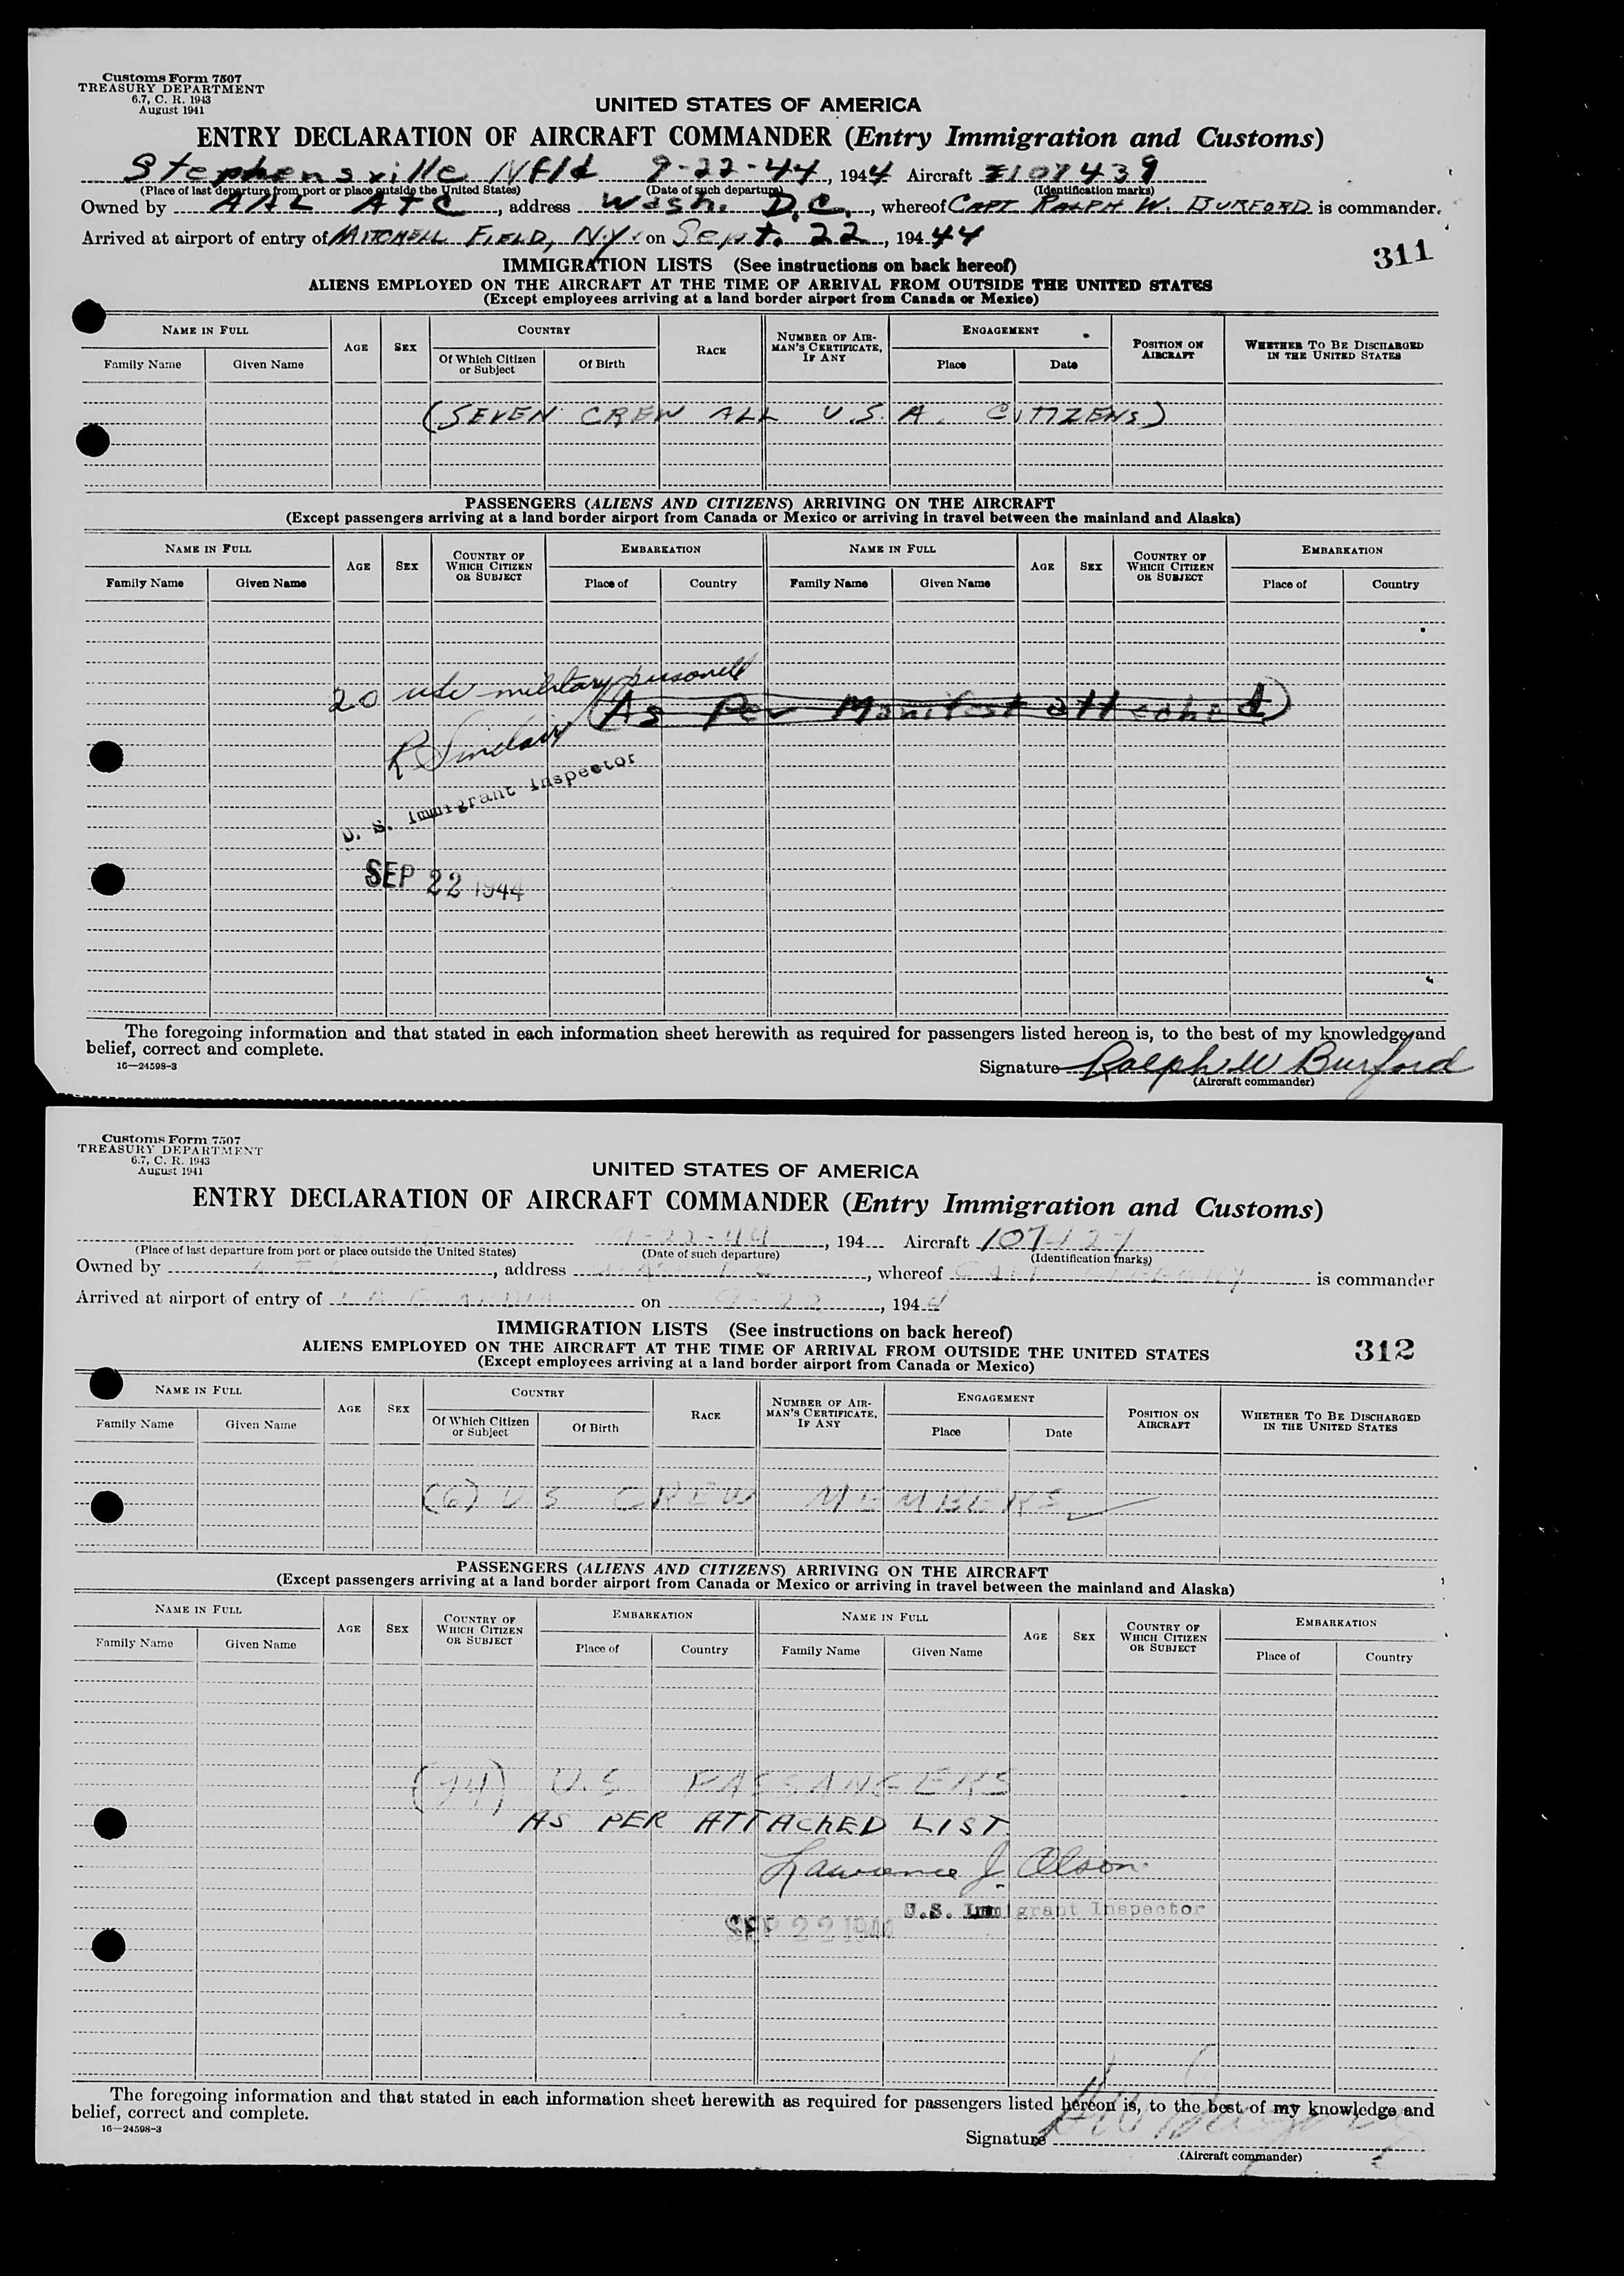 Customs Form 7507
TREASURY DEPARTMENT
6.7, C. R. 1943
August 1941
UNITED STATES OF AMERICA
ENTRY DECLARATION OF AIRCRAFT COMMANDER (Entry Immigration and Customs)
Stephensville Nfld 9-22-44, 1944 Aircraft
(Place of last departure from port or place outside the United States) (Date of such departure) (Identification marks)
Owned by AAL ATC, address Wash. D.C., whereof CAPT RALPH W. BURFORD is commander.
Arrived at airport of entry of MITCHELL FIELD, N.Y. on Sept. 22, 194 44
311
IMMIGRATION LISTS (See instructions on back hereof)
ALIENS EMPLOYED ON THE AIRCRAFT AT THE TIME OF ARRIVAL FROM OUTSIDE THE UNITED STATES
(Except employees arriving at a land border airport from Canada or Mexico)
NAME IN FULL AGE SEX COUNTRY RACE NUMBER OF AIRMAN'S CERTIFICATE, IF ANY ENGAGEMENT POSITION ON AIRCRAFT WHETHER TO BE DISCHARGED IN THE UNITED STATES
Family Name Given Name Of Which Citizen or Subject Of Birth Place Date
(SEVEN CREW ALL U.S.A. CITIZENS)
PASSENGERS (ALIENS AND CITIZENS) ARRIVING ON THE AIRCRAFT
(Except passengers arriving at a land border airport from Canada or Mexico or arriving in travel between the mainland and Alaska)
NAME IN FULL AGE SEX COUNTRY OF WHICH CITIZEN OR SUBJECT EMBARKATION NAME IN FULL AGE SEX COUNTRY OF WHICH CITIZEN OR SUBJECT EMBARKATION
Family Name Given Name Place of Country Family Name Given Name Place of Country
20 military personell
(As Per Manifest attached)
R Sinclair
U. S. Immigrant Inspector
SEP 22 1944
The foregoing information and that stated in each information sheet herewith as required for passengers listed hereon is, to the best of my knowledge and
belief, correct and complete.
16—24598-3
Signature Ralph W Burford
(Aircraft commander)
Customs Form 7507
TREASURY DEPARTMENT
6.7, C. R. 1943
August 1941
UNITED STATES OF AMERICA
ENTRY DECLARATION OF AIRCRAFT COMMANDER (Entry Immigration and Customs)
9-22-44, 194 Aircraft 107427
(Place of last departure from port or place outside the United States) (Date of such departure) (Identification marks)
Owned by , address WASH D C, whereof CAPT is commander
Arrived at airport of entry of LA GUARDIA on 9-22, 1944
IMMIGRATION LISTS (See instructions on back hereof)
312
ALIENS EMPLOYED ON THE AIRCRAFT AT THE TIME OF ARRIVAL FROM OUTSIDE THE UNITED STATES
(Except employees arriving at a land border airport from Canada or Mexico)
NAME IN FULL AGE SEX COUNTRY RACE NUMBER OF AIRMAN'S CERTIFICATE, IF ANY ENGAGEMENT POSITION ON AIRCRAFT WHETHER TO BE DISCHARGED IN THE UNITED STATES
Family Name Given Name Of Which Citizen or Subject Of Birth Place Date
(6) U S CREW MEMBERS
PASSENGERS (ALIENS AND CITIZENS) ARRIVING ON THE AIRCRAFT
(Except passengers arriving at a land border airport from Canada or Mexico or arriving in travel between the mainland and Alaska)
NAME IN FULL AGE SEX COUNTRY OF WHICH CITIZEN OR SUBJECT EMBARKATION NAME IN FULL AGE SEX COUNTRY OF WHICH CITIZEN OR SUBJECT EMBARKATION
Family Name Given Name Place of Country Family Name Given Name Place of Country
U.S PASSANGERS
AS PER ATTACHED LIST
Lawrence J. Olson
U.S. Immigrant Inspector
SEP 22 1944
The foregoing information and that stated in each information sheet herewith as required for passengers listed hereon is, to the best of my knowledge and
belief, correct and complete.
16—24598-3
Signature
(Aircraft commander)